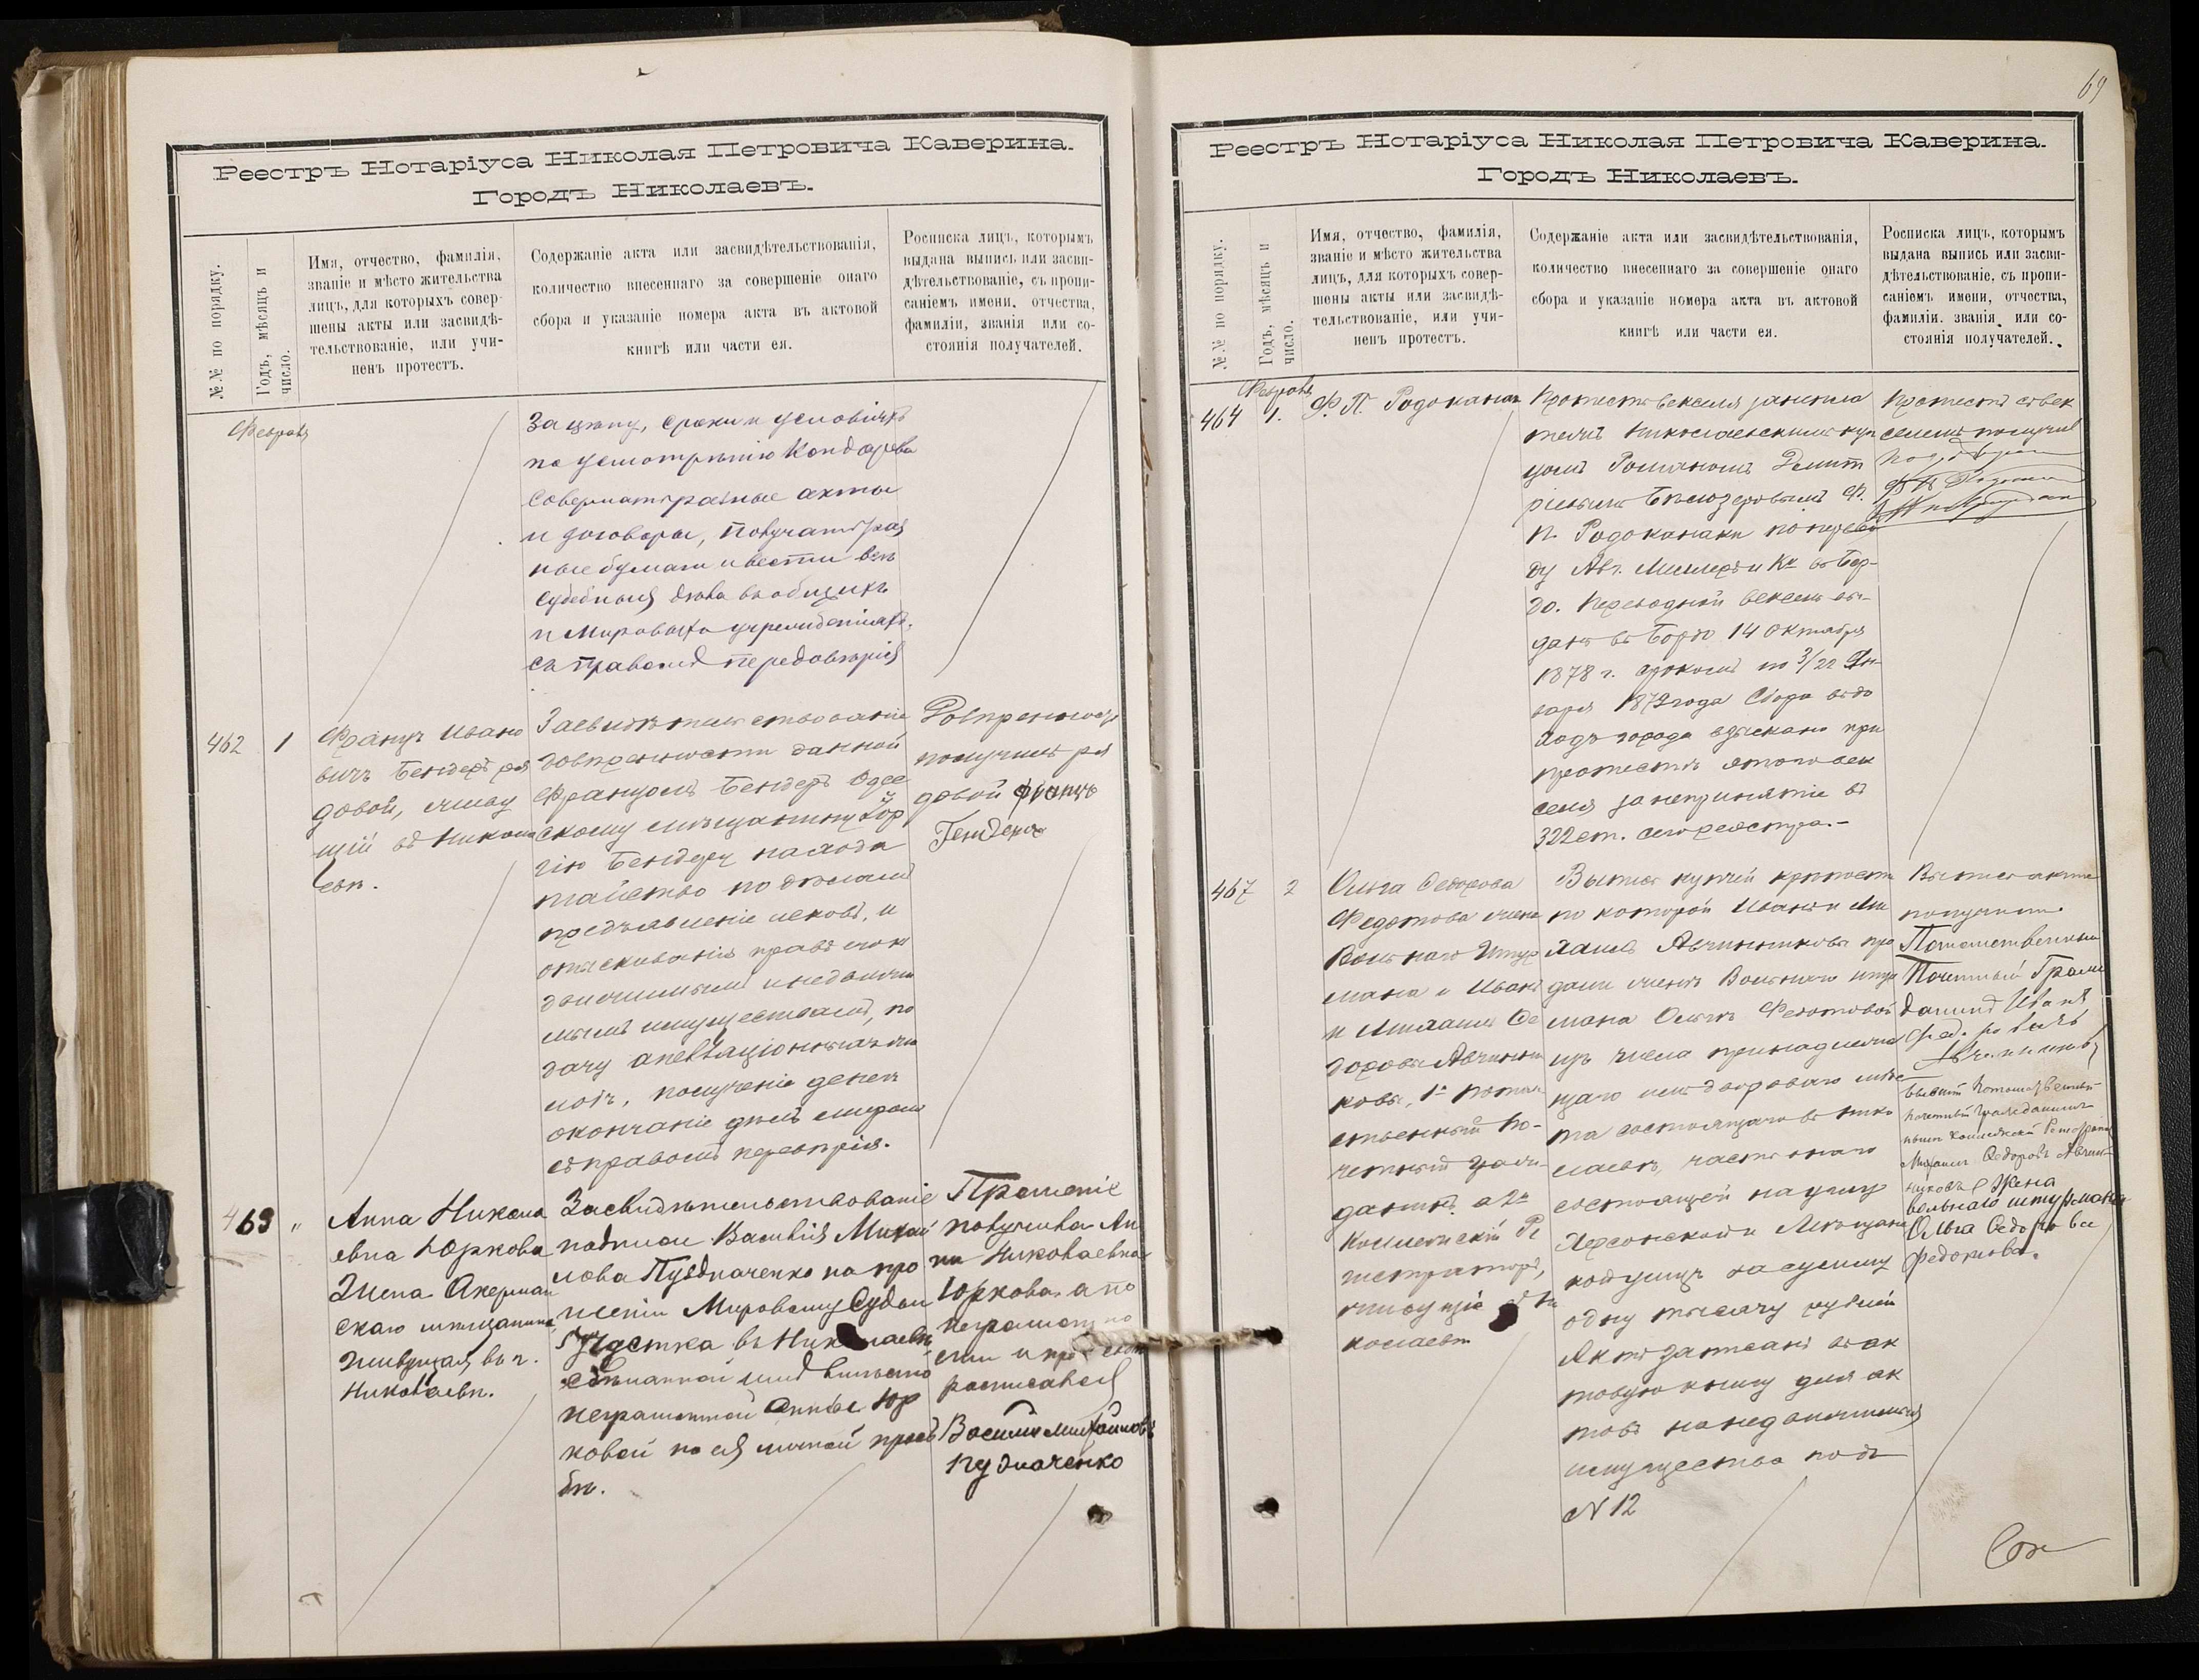 Реестръ Нотаріуса Николая Петровича Каверина.
Городъ Николаевъ.
№№ по порядку.
Годъ, мѣсяцъ и
число.
Имя, отчество, фамилія,
званіе и мѣсто жительства
лицъ, для которыхъ совер-
шены акты или засвидѣ-
тельствованіе, или учи-
ненъ протестъ.
Содержаніе акта или засвидѣтельствованія,
количество внесеннаго за совершеніе онаго
сбора и указаніе номера акта въ актовой
книгѣ или части ея.
Росписка лицъ, которымъ
выдана выпись или засви-
дѣтельствованіе, съ пропи-
саніемъ имени, отчества,
фамиліи, званія или со-
стоянія получателей.
Февраль
За цѣну, сроки и условіяхъ
по усмотрѣнію Кондарева
совершать разные акты
и договоры, получать раз
ные бумаги и вести всѣ
судебныя дѣла въ общихъ
и Мировыхъ учрежденіяхъ
съ правомъ передовѣрія
462
1
Францъ Ивано
вичъ Бендеръ ря
довой, живу
щій въ Никола
евѣ.
Засвидѣтельствованіе
довѣренности данной
Францомъ Бендеръ Одес
скому мѣщанину Юр
гію Бендеру на хода
тайство по дѣламъ
предъявленіе исковъ, и
отыскиванія правъ
движимымъ и недвижи
мымъ имуществамъ, по
дачу апелляціонныхъ жа
лобъ, полученіе денегъ
окончаніе дѣлъ миромъ
съ правомъ передовѣрія.
Довѣренность
получилъ ря
довой Францъ
Бендеръ
463
"
Анна Никола
евна Юркова
жена Акерман
скаго мѣщанина,
живущая въ г.
Николаевѣ.
Засвидѣтельствованіе
подписи Василія Михай
лова Пудначенко на про
шеніи Мировому Судьи
5 Участка въ Николаевѣ
сдѣланной имъ вмѣсто
неграмотной Анны Юр
ковой по ея личной прось
бѣ.
Прошеніе
получила Ан
на Николаевна
Юркова а по
неграмотно
сти и про
расписался
Василій Михайловъ
Пудначенко
69
Реестръ Нотаріуса Николая Петровича Каверина.
Городъ Николаевъ.
№№ по порядку.
Годъ, мѣсяцъ и
число.
Имя, отчество, фамилія,
званіе и мѣсто жительства
лицъ, для которыхъ совер-
шены акты или засвидѣ-
тельствованіе, или учи-
ненъ протестъ.
Содержаніе акта или засвидѣтельствованія,
количество внесеннаго за совершеніе онаго
сбора и указаніе номера акта въ актовой
книгѣ или части ея.
Росписка лицъ, которымъ
выдана выпись или засви-
дѣтельствованіе, съ пропи-
саніемъ имени, отчества,
фамиліи, званія или со-
стоянія получателей.
Февраль
464
1.
Ф. П. Родоканаки
Протестъ векселя за непла
тежъ Николаевскимъ куп
цомъ Романомъ Дмит
ріевымъ Бѣлозеровымъ Ф.
П. Родоканаки по перево
ду Авг. Миллеръ и Кº въ Бор-
до. Переводный вексель вы-
данъ въ Бордо 14 Октября
1878 г. срокомъ по 3/22 Ян-
варя 1879 года Сбора въ до
ходъ города взыскано при
протестѣ этого век
селя за непринятіе въ
322 ст. сего реестра.-
Протестъ съ век
селемъ получилъ
467
2
Ольга Федорова
Федотова жена
Вольнаго Штур
мана и Иванъ
и Михаилъ Фе
доровы Авчинни
ковы, 1й Потом
ственный По-
четный Граж-
данинъ, а 2й
Коллежскій Ре
гистраторъ,
живущіе въ Ни
колаевѣ
Выпись купчей крѣпости
по которой Иванъ и Ми
хаилъ Авчинниковы про
дали женѣ Вольнаго штур
мана Ольгѣ Федотовой
изъ числа принадлежа
щаго имъ двороваго мѣс
та состоящаго въ Нико
лаевѣ, часть онаго
состоящей на углу
Херсонской и Мѣщанс
кой улицъ за сумму
одну тысячу рублей
Актъ записанъ въ ак
товую книгу для ак
товъ на недвижимыя
имущества подъ
N 12
Выпись акта
получили
Потомственный
Почетный Граж
данинъ Иванъ
Федоровичъ
Авчинниковъ,
бывшій Потомственный
почетный гражданинъ
нынѣ Коллежскій Регистраторъ
Михаилъ Федоровъ Авчин-
никовъ, Жена
вольнаго штурмана
Ольга Федорова
Федотова.